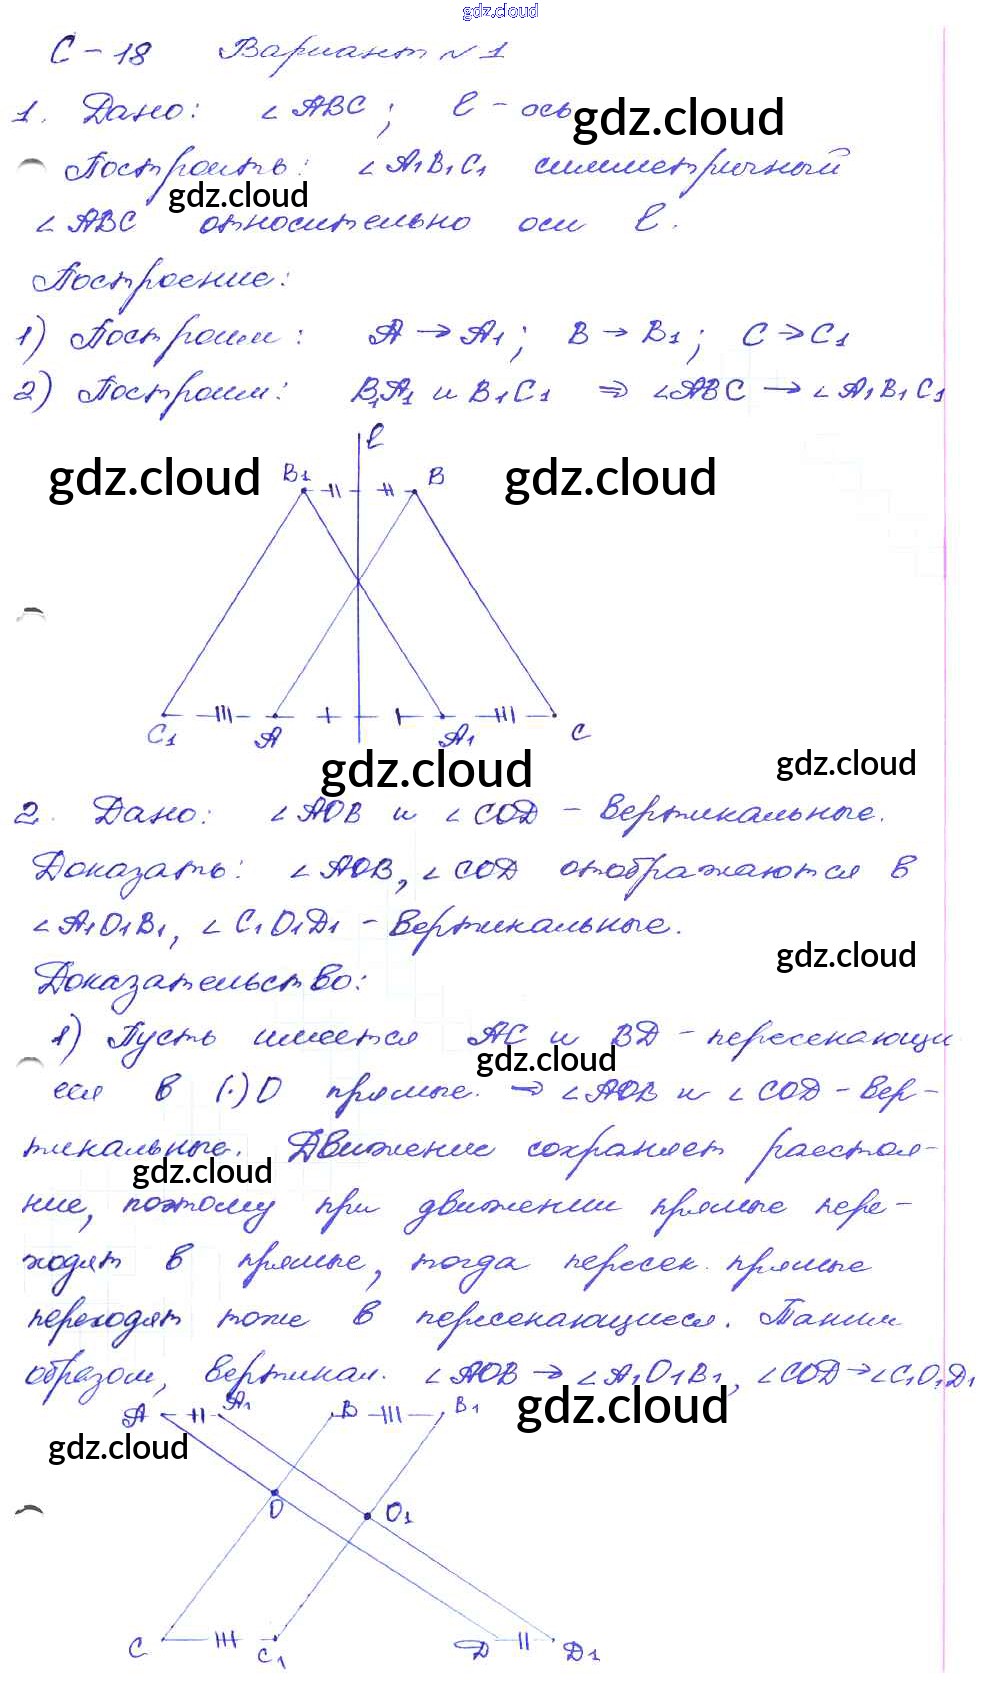 gdz.cloud
С-18 Вариант №1
1. Дано: ∠ABC; l - ось
gdz.cloud
Построить: ∠A₁B₁C₁ симметричный
gdz.cloud
∠ABC относительно оси l.
Построение:
1) Построим: A → A₁; B → B₁; C → C₁
2) Построим: B₁A₁ и B₁C₁ ⇒ ∠ABC → ∠A₁B₁C₁
l
gdz.cloud B₁ B gdz.cloud
C₁ A A₁ C
gdz.cloud gdz.cloud
2. Дано: ∠AOB и ∠COD - вертикальные.
Доказать: ∠AOB, ∠COD отображаются в
∠A₁O₁B₁, ∠C₁O₁D₁ - вертикальные.
gdz.cloud
Доказательство:
1) Пусть имеется AC и BD - пересекающи
gdz.cloud
еся в (·)O прямые. ⇒ ∠AOB и ∠COD - вер-
тикальные. Движение сохраняет расстоя-
gdz.cloud
ние, поэтому при движении прямые пере-
ходят в прямые, тогда пересек. прямые
переходят тоже в пересекающиеся. Таким
образом, вертикал. ∠AOB → ∠A₁O₁B₁, ∠COD → ∠C₁O₁D₁
A A₁ B B₁ gdz.cloud
gdz.cloud
O O₁
C C₁ D D₁